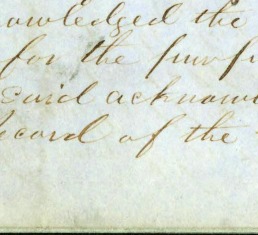 owledged the
for the purp
said acknowl
ecord of the